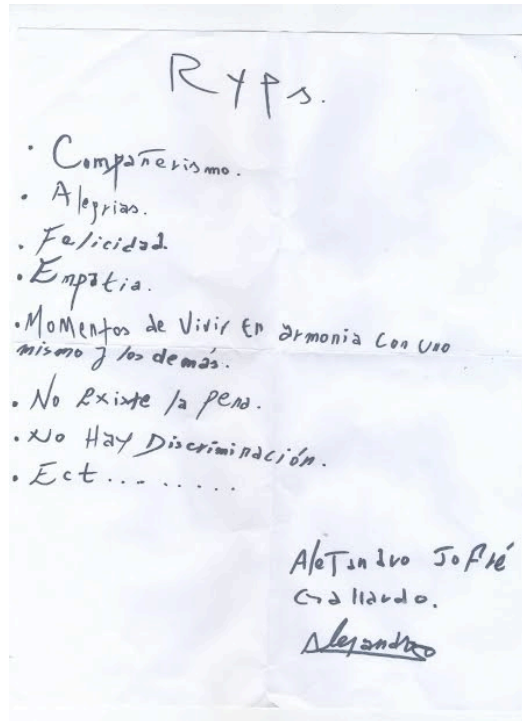 Ryps.
· Compañerismo.
· Alegrias.
· Felicidad.
· Empatia.
· Momentos de Vivir En armonia Con uno
mismo y los demás.
· No Existe la pena.
· No Hay Discriminación.
· Ect.........
AleJandro Jofré
Gallardo.
Alejandro